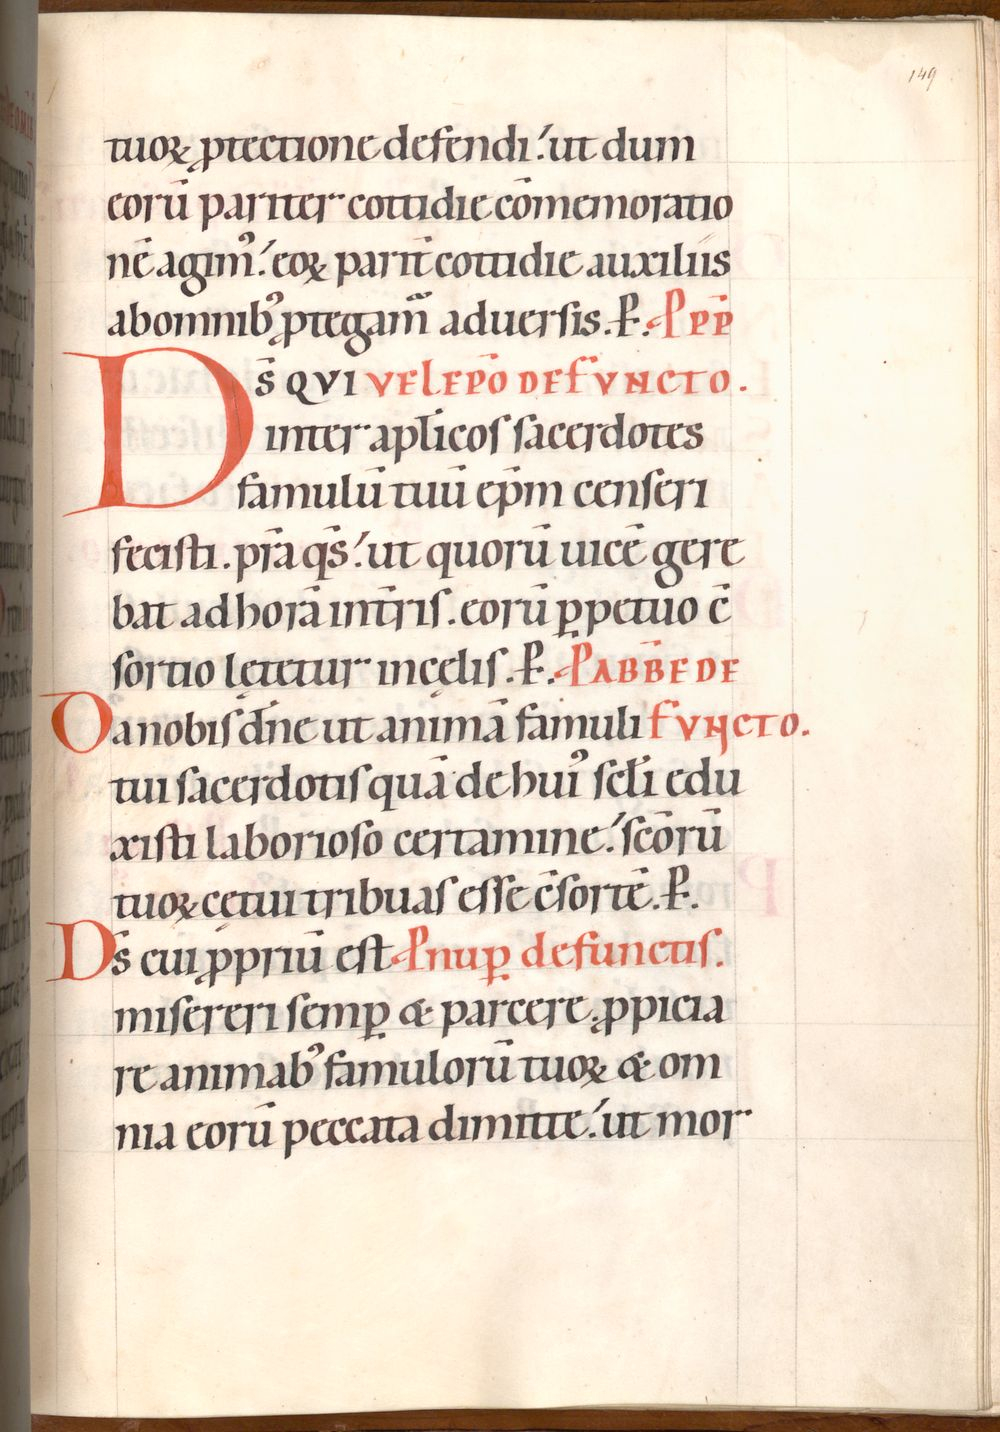 149
tuoꝝ ꝓtectione defendi. ut dum
eorū pariter cottidie cōmemoratio
nē agim᾽. eoꝝ parit̄ cottidie auxiliis
ab omnib᾽ ꝓtegam̄ aduersis. P̄. P̱ PP̄
D̄S QVI VEL EPŌ DEFVNCTO.
inter aplicos sacerdotes
famulū tuū ep̄m censeri
fecisti. pr̄a qs̄. ut quorū uicē gere
bat ad horā int̄ris. eorū ꝑpetuo c̄
sortio lętetur in cęlis. P̄. P̱ ABBE DE
Da nobis dn̄e ut animā famuli FVNCTO.
tui sacerdotis quā de hui᾽ scl̄i edu
xisti laborioso certamine. scōrū
tuoꝝ cętui tribuas esse c̄sortē. P̄.
Ds̄ cui ꝓpriū est P̱ nuꝑ defunctis.
misereri semꝑ & parcere. ꝓpicia
re animab᾽ famulorū tuoꝝ & om
nia eorū peccata dimitte. ut mor